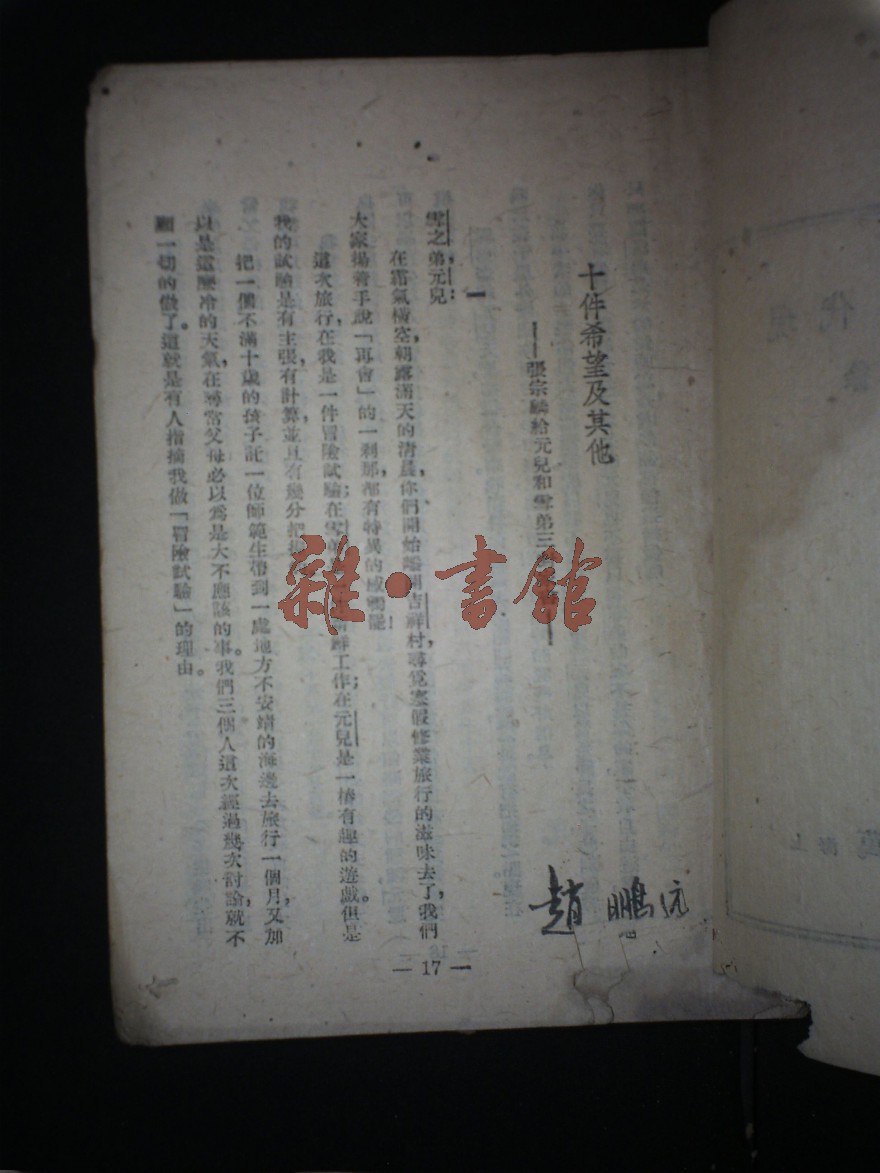 十件希望及其他
——張宗麟給元兒和雪弟三
一
雪之弟，元兒：
在霜氣橫空，朝露滿天的清晨，你們開始踏
吉祥村尋覓寒假修業旅行的滋味去了，我們
大家揚着手說「再會」的一剎那，都有特異的感觸罷！
這次旅行，在我是一件冒險試驗；在雪弟
工作；在元兒是一樁有趣的遊戲。但是
我的試驗是有主張，有計算，並且有幾分把握
把一個不滿十歲的孩子託一位師範生帶到一處地方不安靖的海邊去旅行一個月，又加
以是這麼冷的天氣，在尋常父母必以爲是大不應該的事。我們三個人這次經過幾次討論，就不
顧一切的做了。這就是有人指摘我做「冒險試驗」的理由。
趙鵬
— 17 —
雜·書館